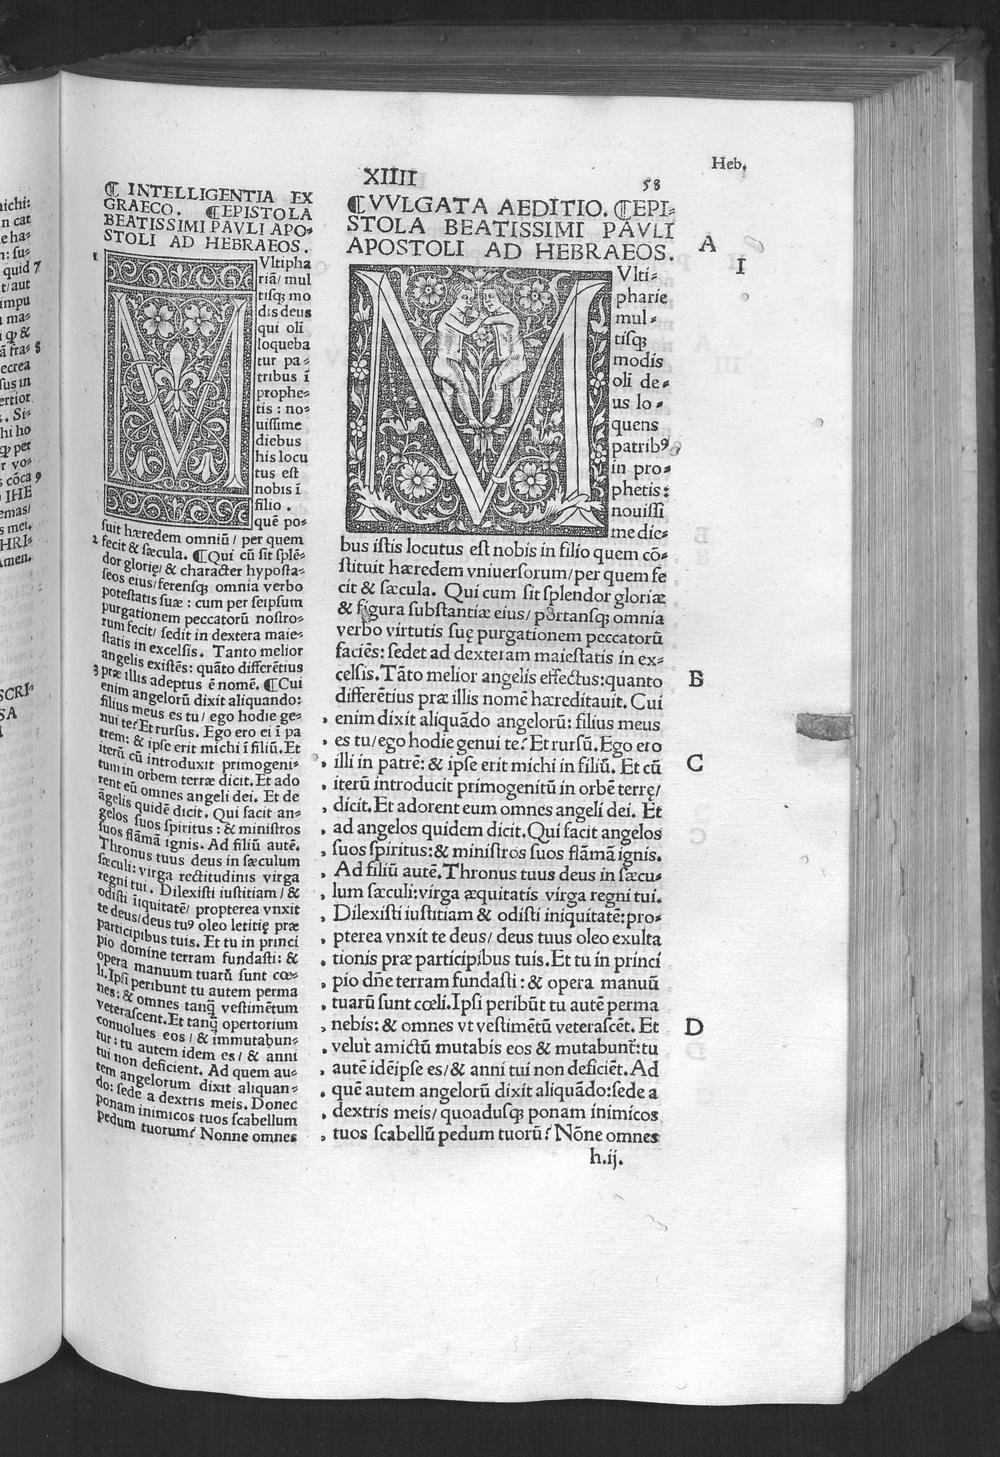 Heb.
XIIII
58
¶ INTELLIGENTIA EX
GRAECO. ¶EPISTOLA
BEATISSIMI PAVLI APO⸗
STOLI AD HEBRAEOS.
1
MVltipha
riā/ mul
tisqꝫ mo
dis deus
qui olī
loqueba
tur pa⸗
tribus ī
prophe⸗
tis : no⸗
uissime
diebus
his locu
tus est
nobis ī
filio .
quē po⸗
suit hæredem omniū/ per quem
2 fecit & sæcula. ¶Qui cū sit splē⸗
dor glorię/ & character hyposta⸗
seos eius/ ferensqꝫ omnia verbo
potestatis suæ : cum per seipsum
purgationem peccatorū nostro⸗
rum fecit/ sedit in dextera maie⸗
statis in excelsis. Tanto melior
angelis existēs: quāto differētius
3 præ illis adeptus ē nomē. ¶Cui
enim angelorū dixit aliquando:
filius meus es tu/ ego hodie ge⸗
nui te? Et rursus. Ego ero ei ī pa
trem: & ipse erit michi ī filiū. Et
iterū cū introduxit primogeni⸗
tum in orbem terræ dicit. Et ado
rent eū omnes angeli dei. Et de
āgelis quidē dicit. Qui facit an⸗
gelos suos spiritus : & ministros
suos flāmā ignis. Ad filiū autē.
Thronus tuus deus in sæculum
sæculi: virga rectitudinis virga
regni tui. Dilexisti iustitiam/ &
odisti īiquitatē/ propterea vnxit
te deus/ deus tuꝰ oleo letitię præ
participibus tuis. Et tu in princi
pio domine terram fundasti: &
opera manuum tuarū sunt cœ⸗
li. Ipsi peribunt tu autem perma
nes: & omnes tanq̄ vestimētum
veterascent. Et tanq̄ opertorium
conuolues eos/ & immutabun⸗
tur : tu autem idem es/ & anni
tui non deficient. Ad quem au⸗
tem angelorum dixit aliquan⸗
do: sede a dextris meis. Donec
ponam inimicos tuos scabellum
pedum tuorum? Nonne omnes
¶VVLGATA AEDITIO. ¶EPI⸗
STOLA BEATISSIMI PAVLI
APOSTOLI AD HEBRAEOS.
A
I
MVlti⸗
pharie
mul⸗
tisqꝫ
modis
oli de⸗
us lo⸗
quens
patribꝰ
in pro⸗
phetis:
nouissi
me die⸗
bus istis locutus est nobis in filio quem cō⸗
stituit hæredem vniuersorum/ per quem fe
cit & sæcula. Qui cum sit splendor gloriæ
& figura substantiæ eius/ portansqꝫ omnia
verbo virtutis suę purgationem peccatorū
faciēs: sedet ad dexteram maiestatis in ex⸗
celsis. Tāto melior angelis effectus: quanto
B
differētius præ illis nomē hæreditauit. Cui
enim dixit aliquādo angelorū: filius meus
es tu/ ego hodie genui te? Et rursū. Ego ero
illi in patrē: & ipse erit michi in filiū. Et cū
C
iterū introducit primogenitū in orbē terrę/
dicit. Et adorent eum omnes angeli dei. Et
ad angelos quidem dicit. Qui facit angelos
suos spiritus: & ministros suos flāmā ignis.
Ad filiū autē. Thronus tuus deus in sæcu⸗
lum sæculi: virga æquitatis virga regni tui.
Dilexisti iustitiam & odisti iniquitatē: pro⸗
pterea vnxit te deus/ deus tuus oleo exulta
tionis præ participibus tuis. Et tu in princi
pio dñe terram fundasti : & opera manuū
tuarū sunt cœli. Ipsi peribūt tu autē perma
nebis: & omnes vt vestimētū veterascēt. Et
D
velut amictū mutabis eos & mutabunt̄: tu
autē idēipse es/ & anni tui non deficiēt. Ad
quē autem angelorū dixit aliquādo: sede a
dextris meis/ quoadusqꝫ ponam inimicos
tuos scabellū pedum tuorū? Nōne omnes
h.ij.